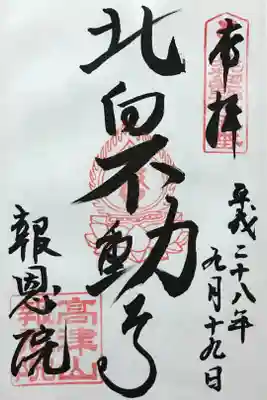 奉拝
平成二十八年
九月十九日
北向不動尊
報恩院
高津山